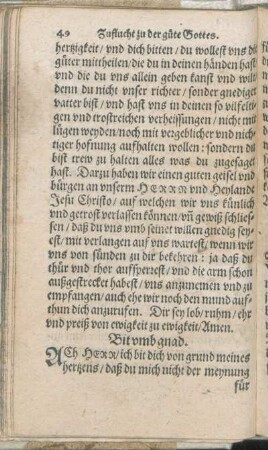 49 Zuflucht zu der güte Gottes.
hertzigkeit/ vnd dich bitten/ du wollest vns die
güter mittheilen/ die du in deinen händen hast
vnd die du vns allein geben kanst vnd wilt
denn du nicht vnser richter/ sonder gnediger
vatter bist/ vnd hast vns in deinen so vilfelti-
gen vnd trostreichen verheissungen/ nicht mit
lügen weyden/ noch mit vergeblicher vnd nich-
tiger hofnung auffhalten wollen: sondern du
bist trew zu halten alles was du zugesaget
hast. Darzu haben wir einen guten geisel vnd
bürgen an vnserm HERRN vnd Heylande
Jesu Christo/ auf welchen wir vns künlich
vnd getrost verlassen können/ vñ gewiß schlies-
sen/ daß du vns vmb seinet willen gnedig sey-
est/ mit verlangen auf vns wartest/ wenn wir
vns von sünden zu dir bekehren: ja daß du
thür vnd thor auffsperest/ vnd die arm schon
außgestrecket habest/ vns anzunemen vnd zu
empfangen/ auch ehe wir noch den mund auf-
thun dich anzurufen. Dir sey lob/ ruhm/ ehr
vnd preiß von ewigkeit zu ewigkeit/ Amen.
Bit vmb gnad.
ACh HERR/ ich bit dich von grund meines
hertzens/ daß du mich nicht der meynung
für